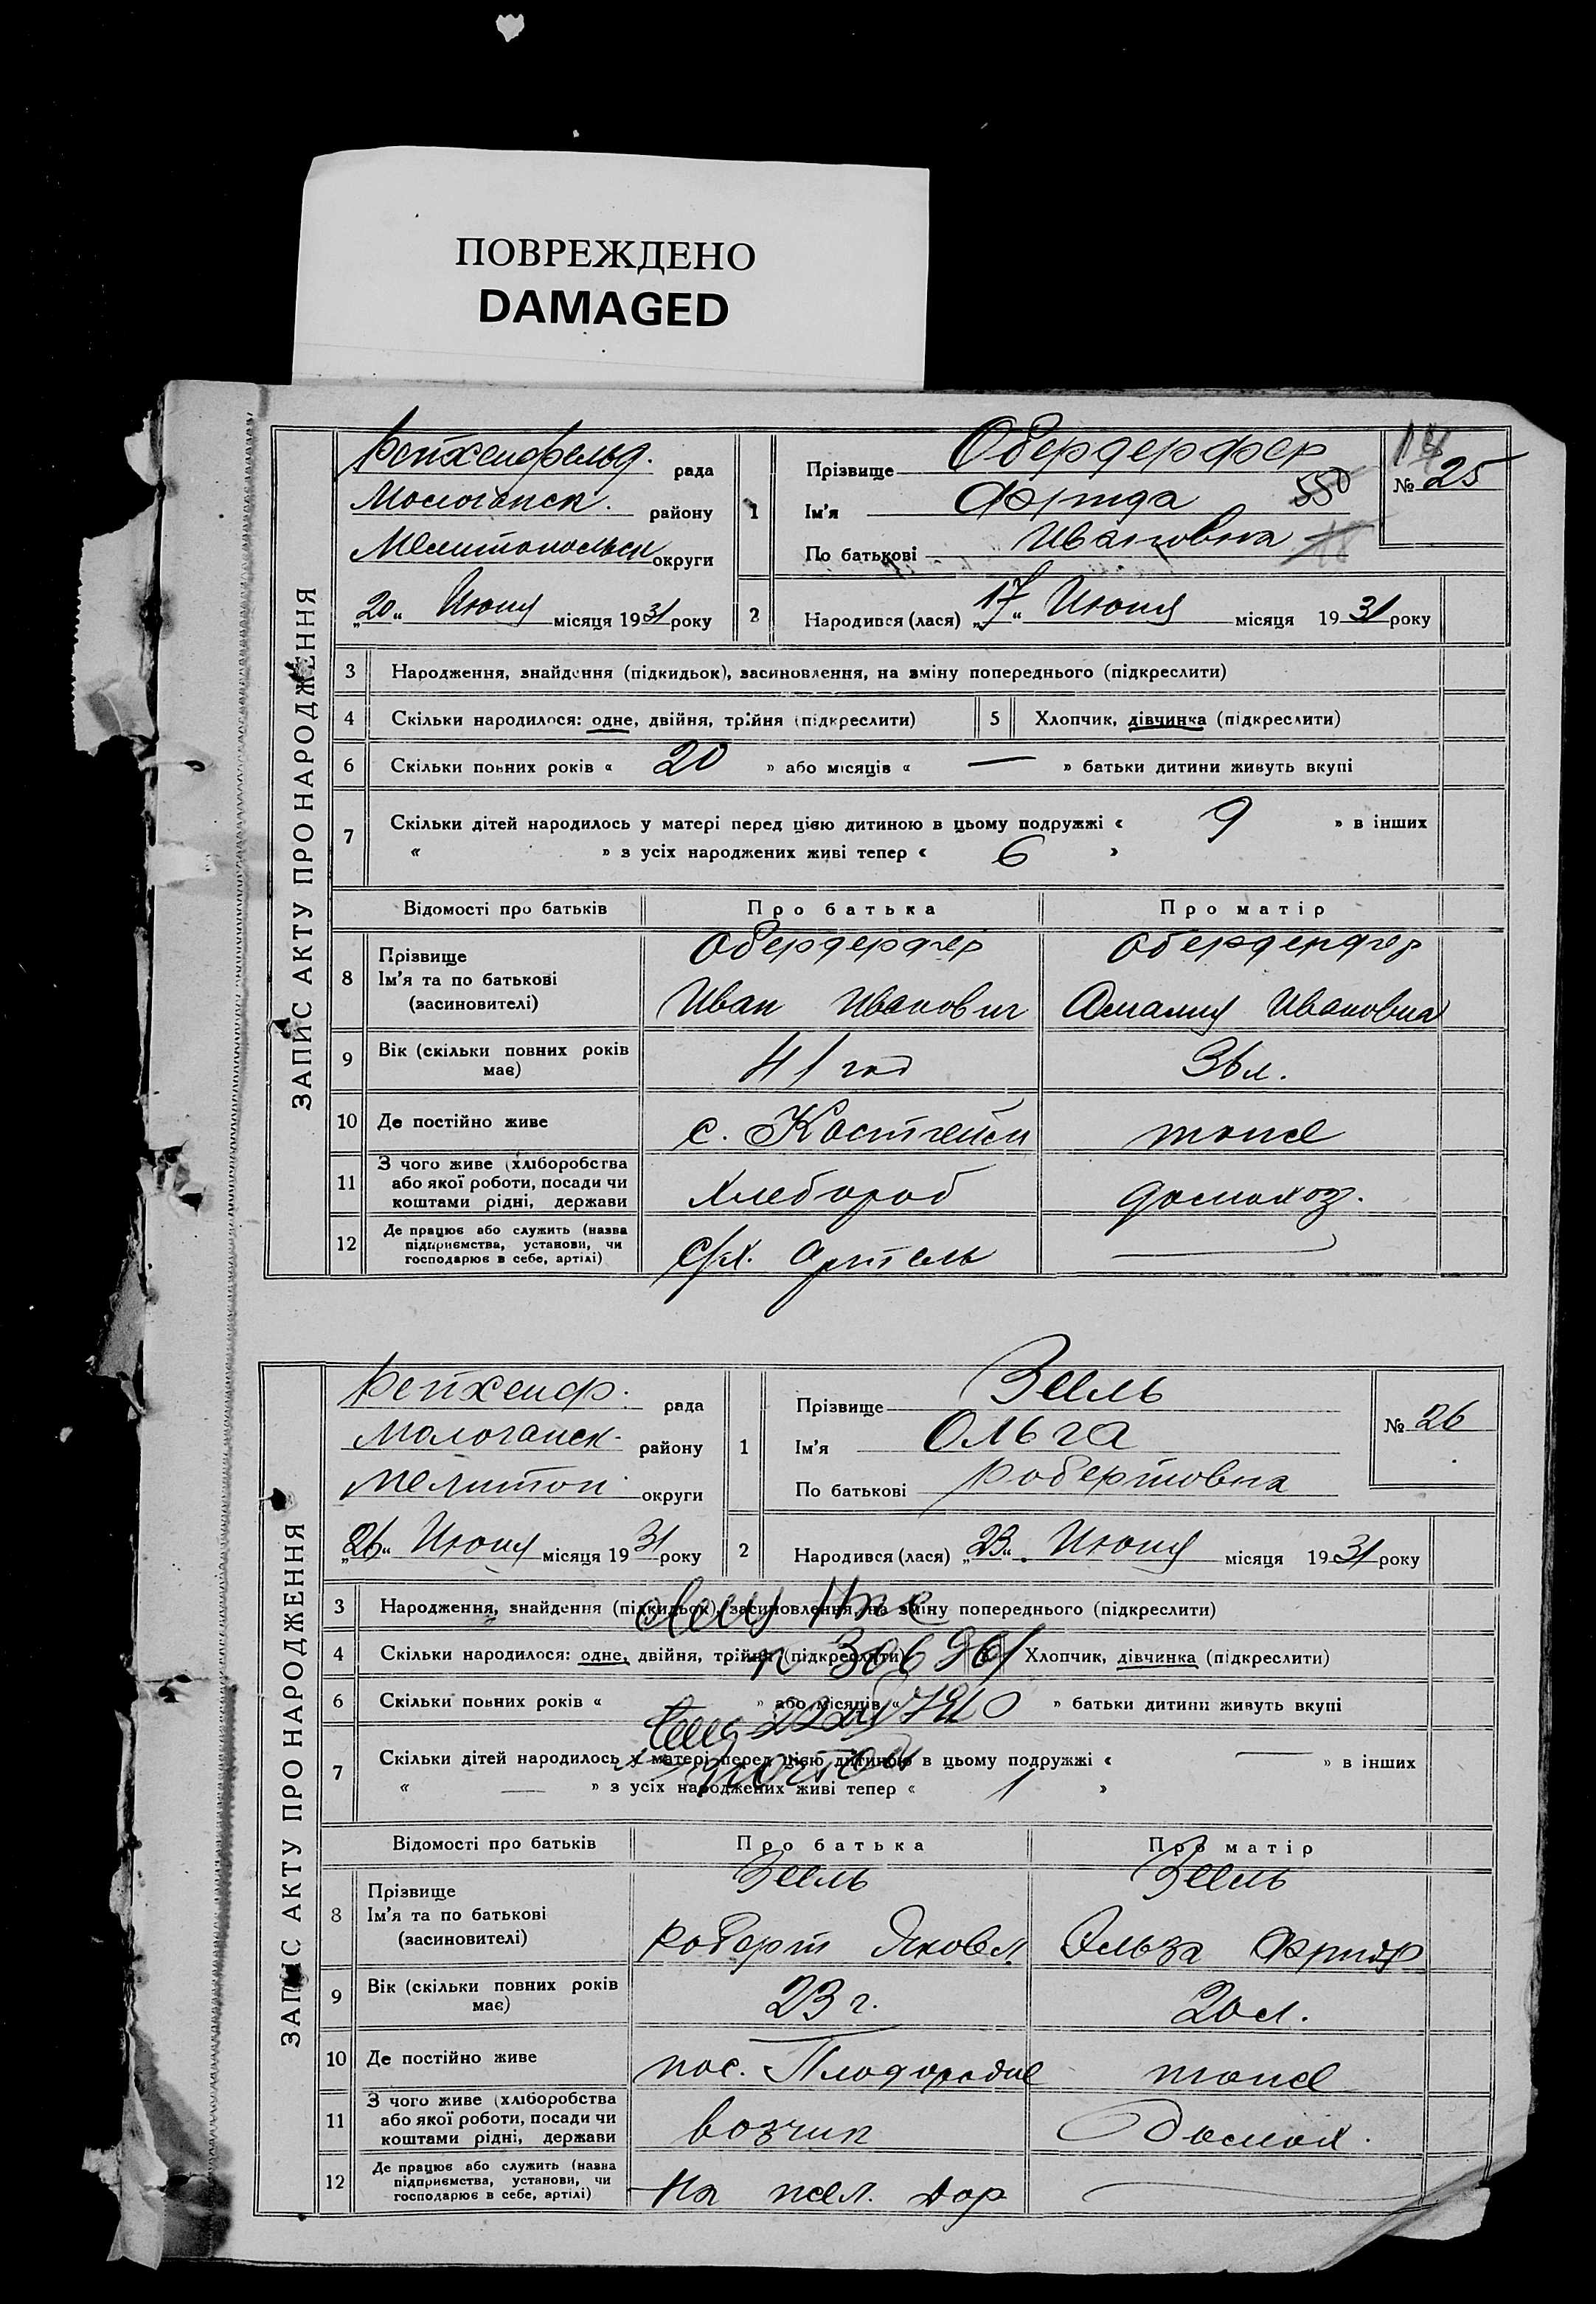 ПОВРЕЖДЕНО
DAMAGED
ЗАПИС АКТУ ПРО НАРОДЖЕННЯ
Рейхенфельд. рада
Мологанск. району
Мелитопольск округи
„20“ Июня місяця 1931 року
1 Прізвище Обердерфер
Ім'я Фрида 550
По батькові Ивановна 18
№ 25
2 Народився (лася) „17“ Июня місяця 1931 року
3 Народження, знайдення (підкидьок), засиновлення, на зміну попереднього (підкреслити)
4 Скільки народилося: одне, двійня, трійня (підкреслити) 5 Хлопчик, дівчинка (підкреслити)
6 Скільки повних років « 20 » або місяців « — » батьки дитини живуть вкупі
7 Скільки дітей народилось у матері перед цією дитиною в цьому подружжі « 9 » в інших
« » з усіх народжених живі тепер « 6 »
Відомості про батьків Про батька Про матір
8 Прізвище Ім'я та по батькові (засиновителі) Обердерфер Иван Иванович Обердерфер Амалия Ивановна
9 Вік (скільки повних років має) 41 год 36 л.
10 Де постійно живе с. Костгейм тоже
11 З чого живе (хліборобства або якої роботи, посади чи коштами рідні, держави Хлебороб домохоз.
12 Де працює або служить (назва підприємства, установи, чи господарює в себе, артілі) С/х. артель —
ЗАПИС АКТУ ПРО НАРОДЖЕННЯ
Рейхенф. рада
Мологанск. району
Мелитоп. округи
„26“ Июня місяця 1931 року
1 Прізвище Зеель
Ім'я Ольга
По батькові Робертовна
№ 26
2 Народився (лася) „23“ Июня місяця 1931 року
3 Народження, знайдення (підкидьок), засиновлення, на зміну попереднього (підкреслити)
4 Скільки народилося: одне, двійня, трійня (підкреслити) Хлопчик, дівчинка (підкреслити)
6 Скільки повних років « » або місяців « » батьки дитини живуть вкупі
7 Скільки дітей народилось у матері перед цією дитиною в цьому подружжі « — » в інших
« — » з усіх народжених живі тепер « 1 »
Відомості про батьків Про батька Про матір
8 Прізвище Ім'я та по батькові (засиновителі) Зеель Роберт Яковл. Зеель Эльза Фридр
9 Вік (скільки повних років має) 23 г. 20 л.
10 Де постійно живе пос. Плодородие тоже
11 З чого живе (хліборобства або якої роботи, посади чи коштами рідні, держави возчик домох.
12 Де працює або служить (назва підприємства, установи, чи господарює в себе, артілі) На жел. дор —